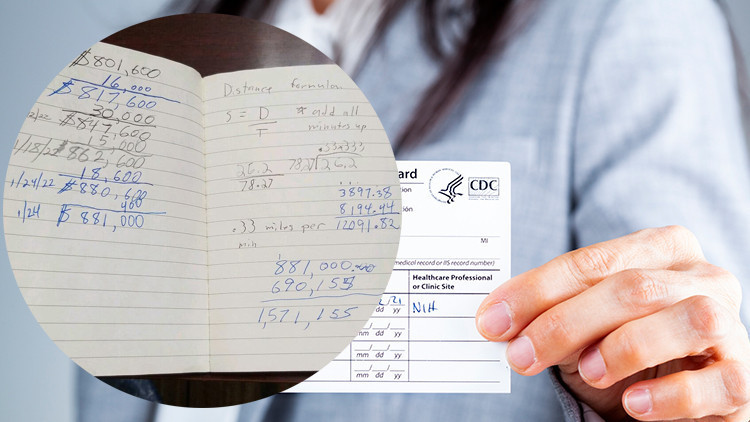 $801,600
16,000
$817,600
30,000
2/22 $847,600
15,000
1/18/22 $862,600
18,600
1/24/22 $880,600
400
1/24 $881,000
Distance formula
S = D
T
* add all
minutes up
.33333
26.2
78.27
78 √26.2
3897.38
8194.44
12091.82
.33 miles per
min
881,000.00
690,155
1,571,155
ard
CDC
MI
medical record or IIS record number)
Healthcare Professional
or Clinic Site
/21
dd yy
NIH
mm dd yy
mm dd yy